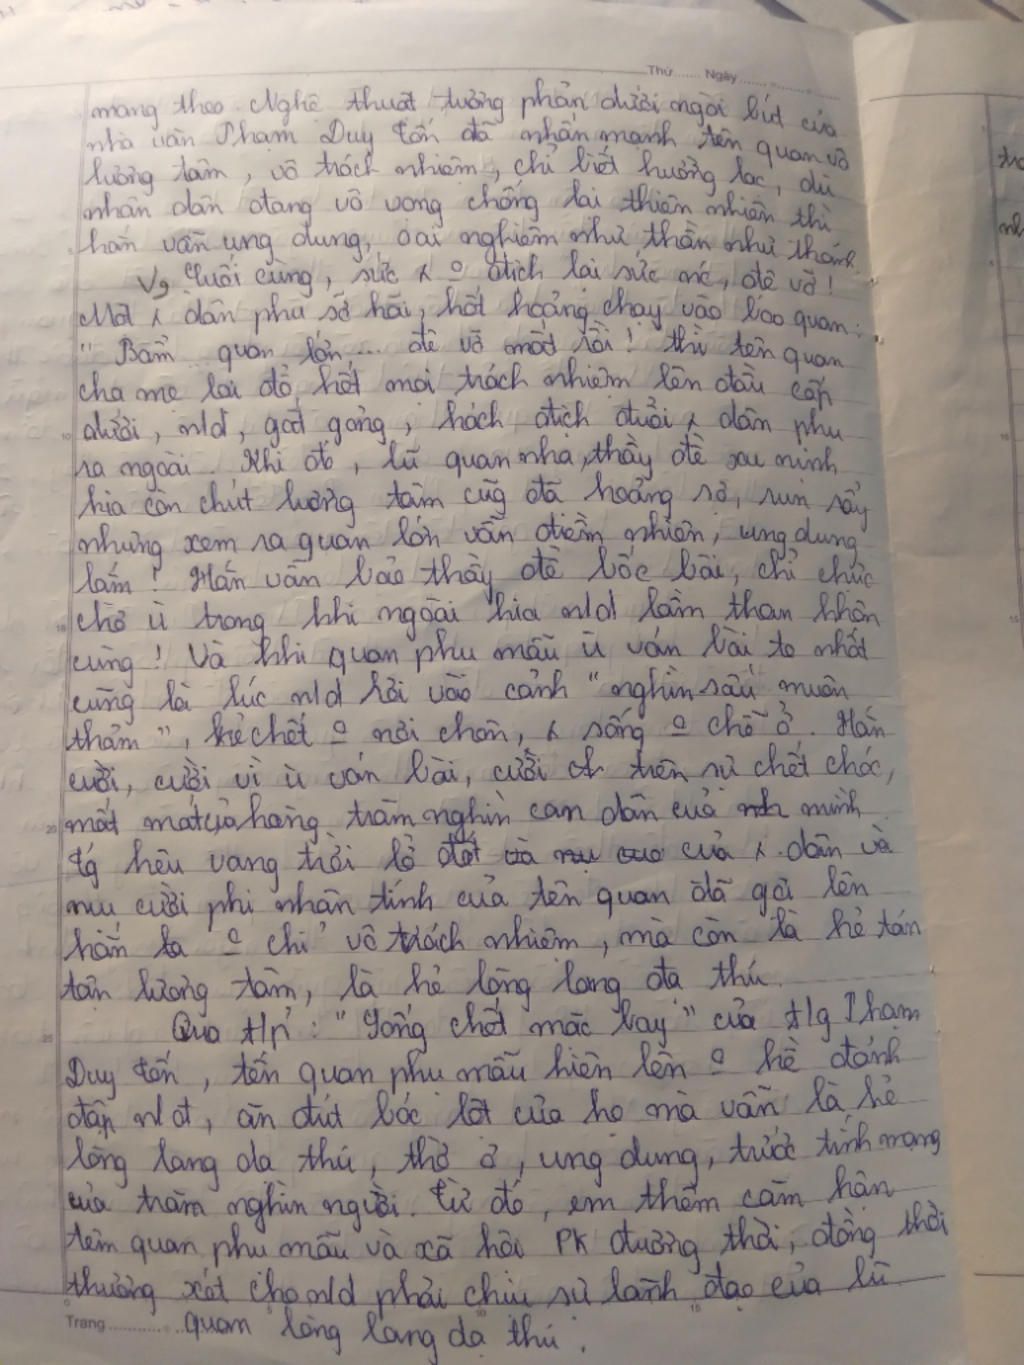 Thứ...... Ngày............
mang theo. Nghệ thuật tương phản dưới ngòi bút của
nhà văn Phạm Duy Tốn đã nhấn mạnh tên quan vô
lương tâm, vô trách nhiệm, chỉ biết hưởng lạc, dù
nhân dân đang vô vọng chống lại thiên nhiên thì
hắn vẫn ung dung, oai nghiêm như thần như thánh.
Cuối cùng, sức x o địch lại sức nc, đê vỡ!
Một x dân phu sợ hãi, hốt hoảng chạy vào báo quan:
" Bẩm quan lớn ... đê vỡ mất rồi! thì tên quan
cha mẹ lại đổ hết mọi trách nhiệm lên đầu cấp
dưới, nld, gắt gỏng, hách dịch đuổi x dân phu
ra ngoài. Khi đó, lũ quan nha, thầy đề xu nịnh
kia còn chút lương tâm cũg đã hoảng sợ, run rẩy
nhưng xem ra quan lớn vẫn điềm nhiên, ung dung
lắm! Hắn vẫn bảo thầy đề bốc bài, chỉ chực
chờ ù trong khi ngoài kia nld lầm than khôn
cùng! Và khi quan phụ mẫu ù ván bài to nhất
cũng là lúc nld rơi vào cảnh "nghìn sầu muôn
thảm", kẻ chết o nơi chôn, x sống o chỗ ở. Hắn
cười, cười vì ù ván bài, cười trên sự chết chóc,
mất mát của hàng trăm nghìn con dân của mình
Tg kêu vang trời lở đất của x dân và
nụ cười phi nhân tính của tên quan đã gợi lên
hắn ta o chỉ vô trách nhiệm, mà còn là kẻ tán
tận lương tâm, là kẻ lòng lang dạ thú.
Qua t/p: "Sống chết mặc bay" của t/g Phạm
Duy Tốn, tên quan phụ mẫu hiện lên o hề đánh
đập nld, ăn đút bóc lột của họ mà vẫn là kẻ
lòng lang dạ thú, thờ ơ, ung dung, trước tính mạng
của trăm nghìn người. Từ đó, em thêm căm hận
tên quan phụ mẫu và xã hội PK đương thời, đồng thời
thương xót cho nld phải chịu sự lãnh đạo của lũ
quan lòng lang dạ thú.
Trang............